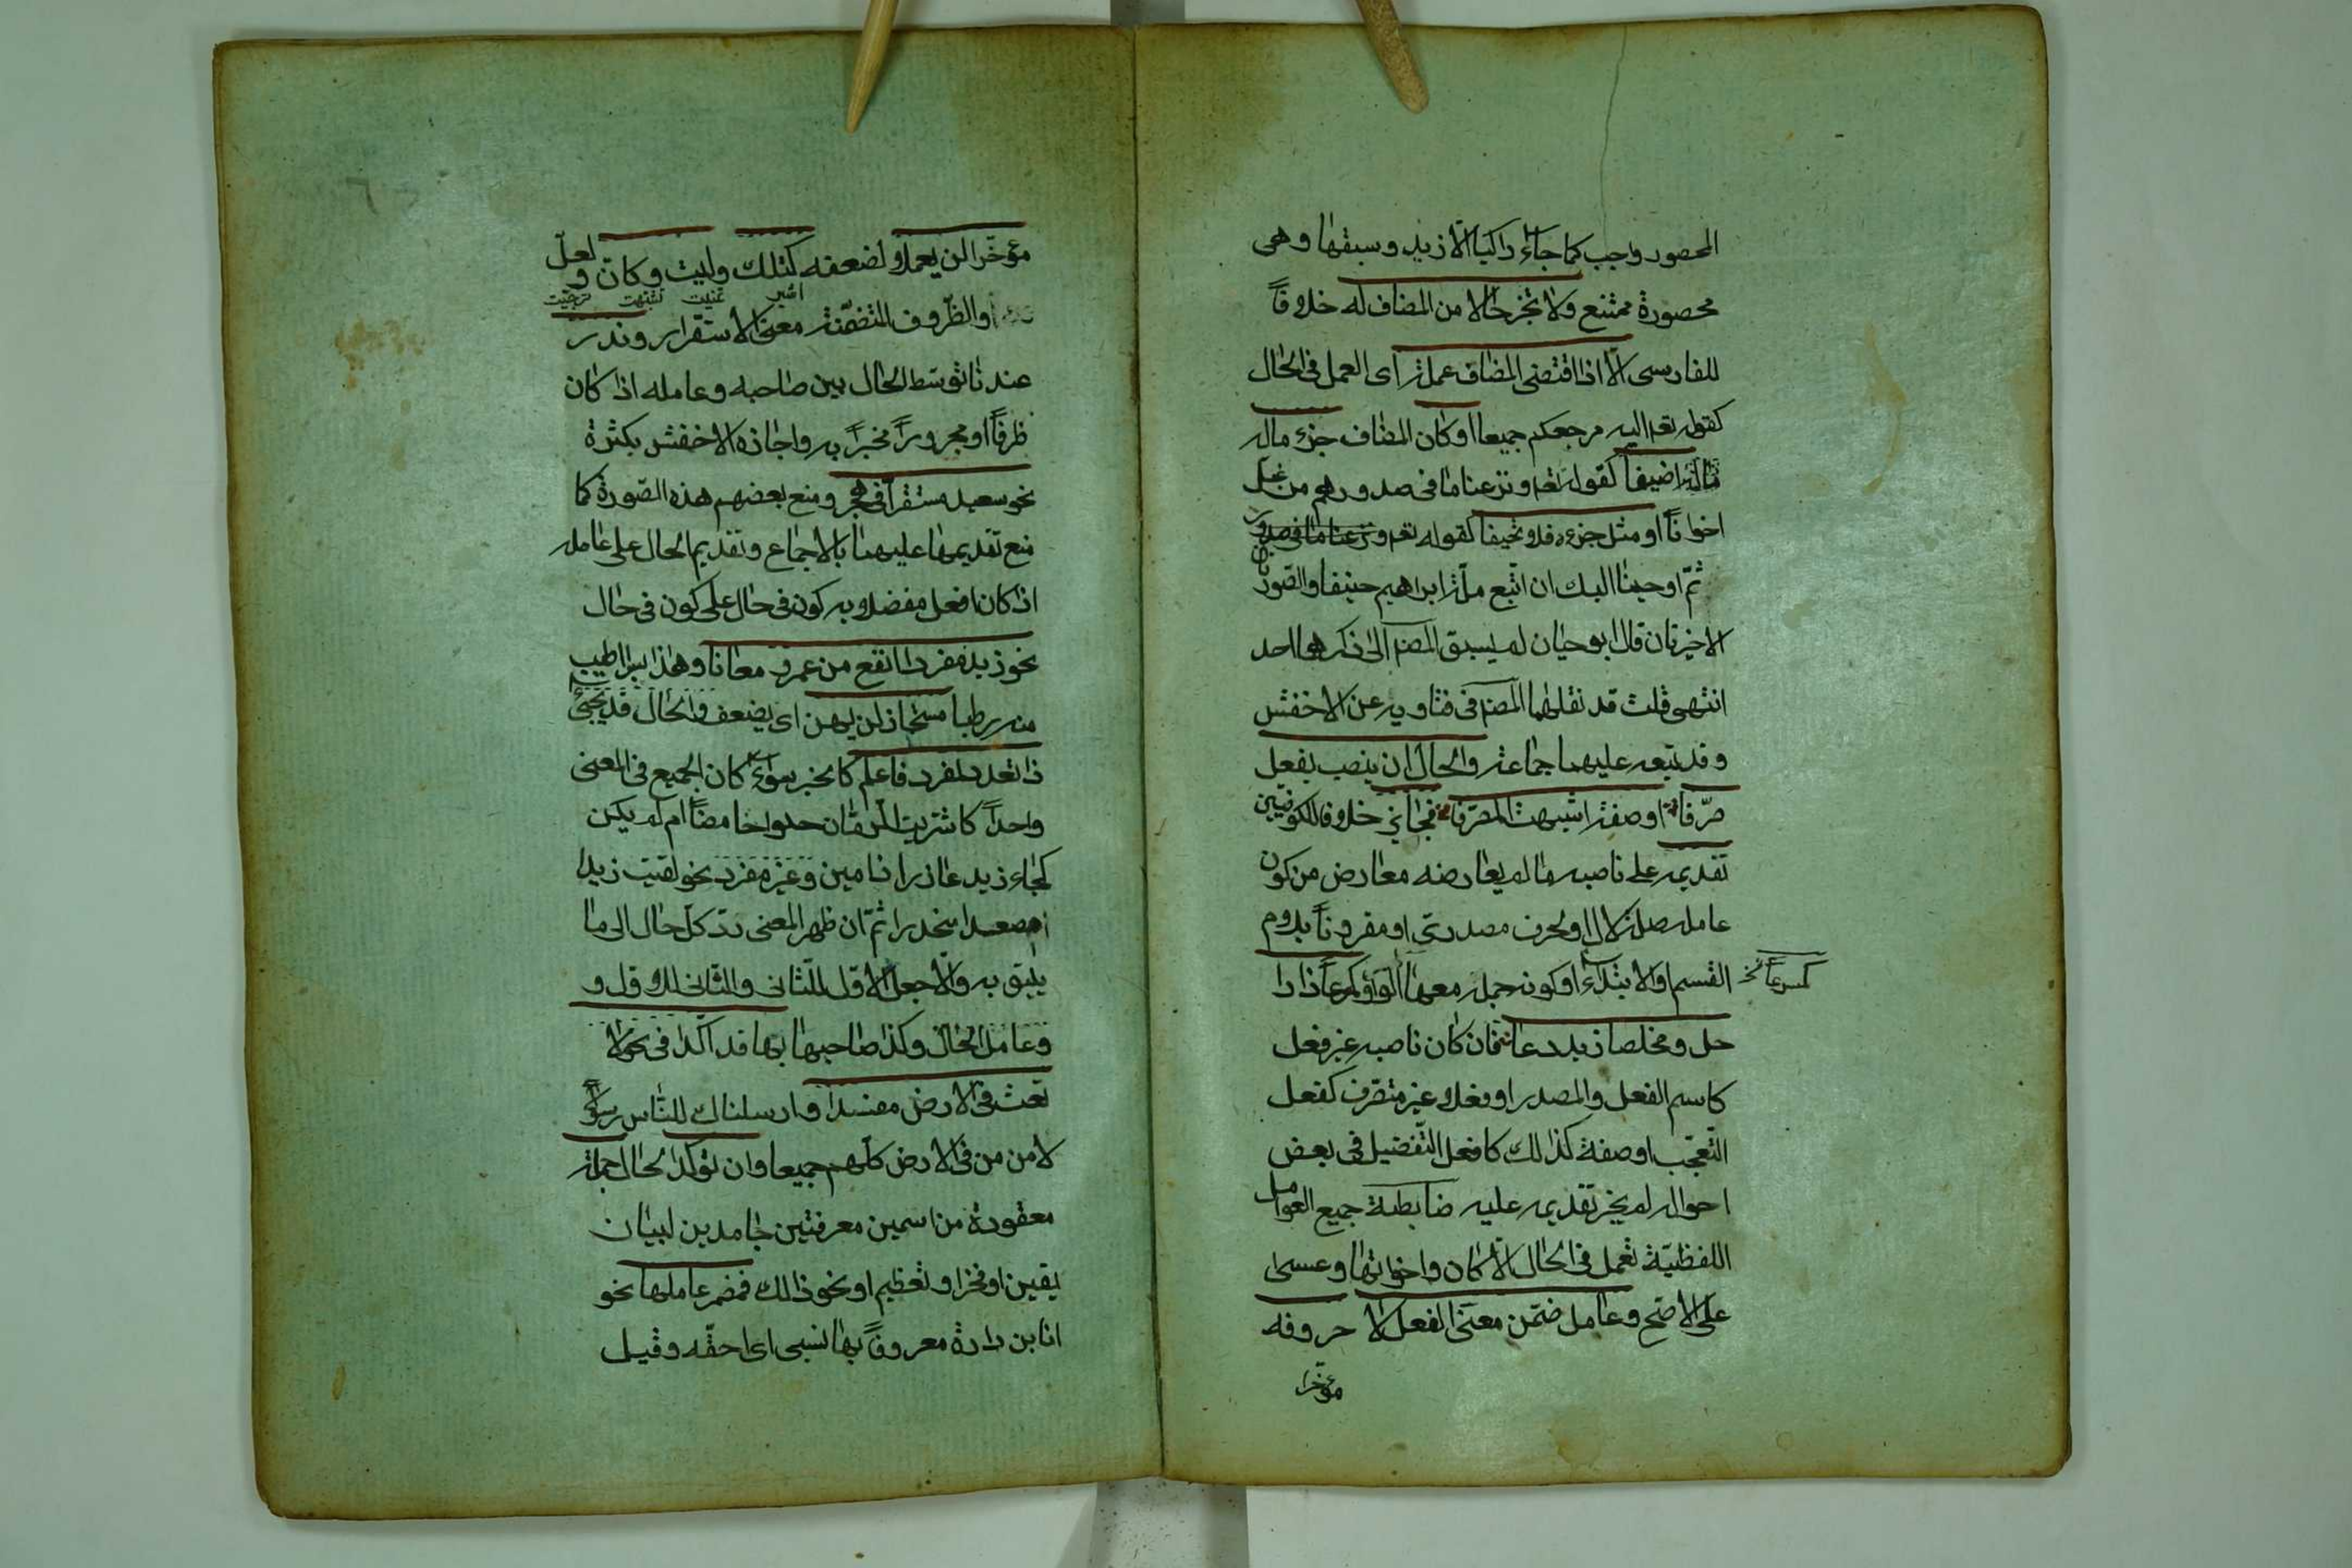 المحصور وجب كما جاء راكبا الا زيد وسبقها وهى
محصورة ممتنع ولا تجز حالا من المضاف له خلافاً
للفارسى الا اذا اقتضى المضاف عمله اى العمل فى الحال
كقوله تعه اليه مرجعكم جميعا او كان المضاف جزء ماله
اضيفا كقوله تعه ونزعنا ما فى صدورهم من غل
اخواناً او مثل جزءه فلا تحيفا كقوله تعه
ثم اوحينا اليك ان اتبع ملة ابراهيم حنيفا والصورتان
الاخيرتان قال ابو حيان لم يسبق المصنم الى ذكرهما احد
انتهى قلت قد نقلهما المصنم فى فتاويه عن الاخفش
وقد تبعه عليهما جماعة والحال ان ينصب بفعل
صرّفا او صفة اشبهت المصرّفا فجائز خلافا للكوفيين
تقديمه على ناصبه ما لم يعارضه معارض من كون
عامله صلة لال او لحرف مصدرى او مقروناً بلام
القسم او الابتداء او كونه جملة معها الواو كمسرعاً ذا را
كمسرعاً نخ
حل ومخلصا زيد دعا فان كان ناصبه غير فعل
كاسم الفعل والمصدر او فعلا غير متصرف كفعل
التعجب او صفة كذالك كافعل التفضيل فى بعض
احواله لم يجز تقديمه عليه ضابطة جميع العوامل
اللفظيّة تعمل فى الحال الا كان واخواتها وعسى
على الاصح وعامل ضمّن معنى الفعل لا حروفه
مؤخرا
مؤخّرا لن يعملا لضعفه كتلك وليت وكانّ ولعلّ
اشير تمنيت تشبهت ترجيت
والظّروف المتضمّنة معنى الاستقرار وندر
عندنا توسّط الحال بين صاحبه وعامله اذا كان
ظرفاً او مجروراً مخبراً به واجازه الاخفش بكثرة
نحو سعيد مستقراً فى هجر ومنع بعضهم هذه الصّورة كما
منع تقديمها عليهما بالاجماع وتقديم الحال على عامله
اذا كان افعل مفضلا به كون فى حال على كون فى حال
نحو زيد مفردا انفع من عمرو معانا وهذا بسرا اطيب
منه رطبا مستجاز لن يهن اى يضعف والحال قد يجئ
ذا تعدد لمفرد فاعلم كالخبر سواء كان الجميع فى المعنى
واحداً كاشتريت الرّمّان حلوا حامضاً ام لم يكن
كجاء زيد عاذرا ذا مين وغير مفرد نحو لقيت زيدا
مصعدا منحدرا ثمّ ان ظهر المعنى ردّ كلّ حال الى ما
يليق به والّا جعل الاوّل للثّانى والثّانى للاوّل و
وعامل الحال وكذا صاحبها بها قد اكّدا فى نحو لا
تعث فى الارض مفسدا وارسلناك للنّاس رسولاً
لامن من فى الارض كلّهم جميعا وان توكّد الحال جملة
معقودة من اسمين معرفتين جامدين لبيان
يقين او فخر او تعظيم او نحو ذالك فمضمر عاملها نحو
انا ابن دارة معروفاً بها نسبى اى احقّه وقيل